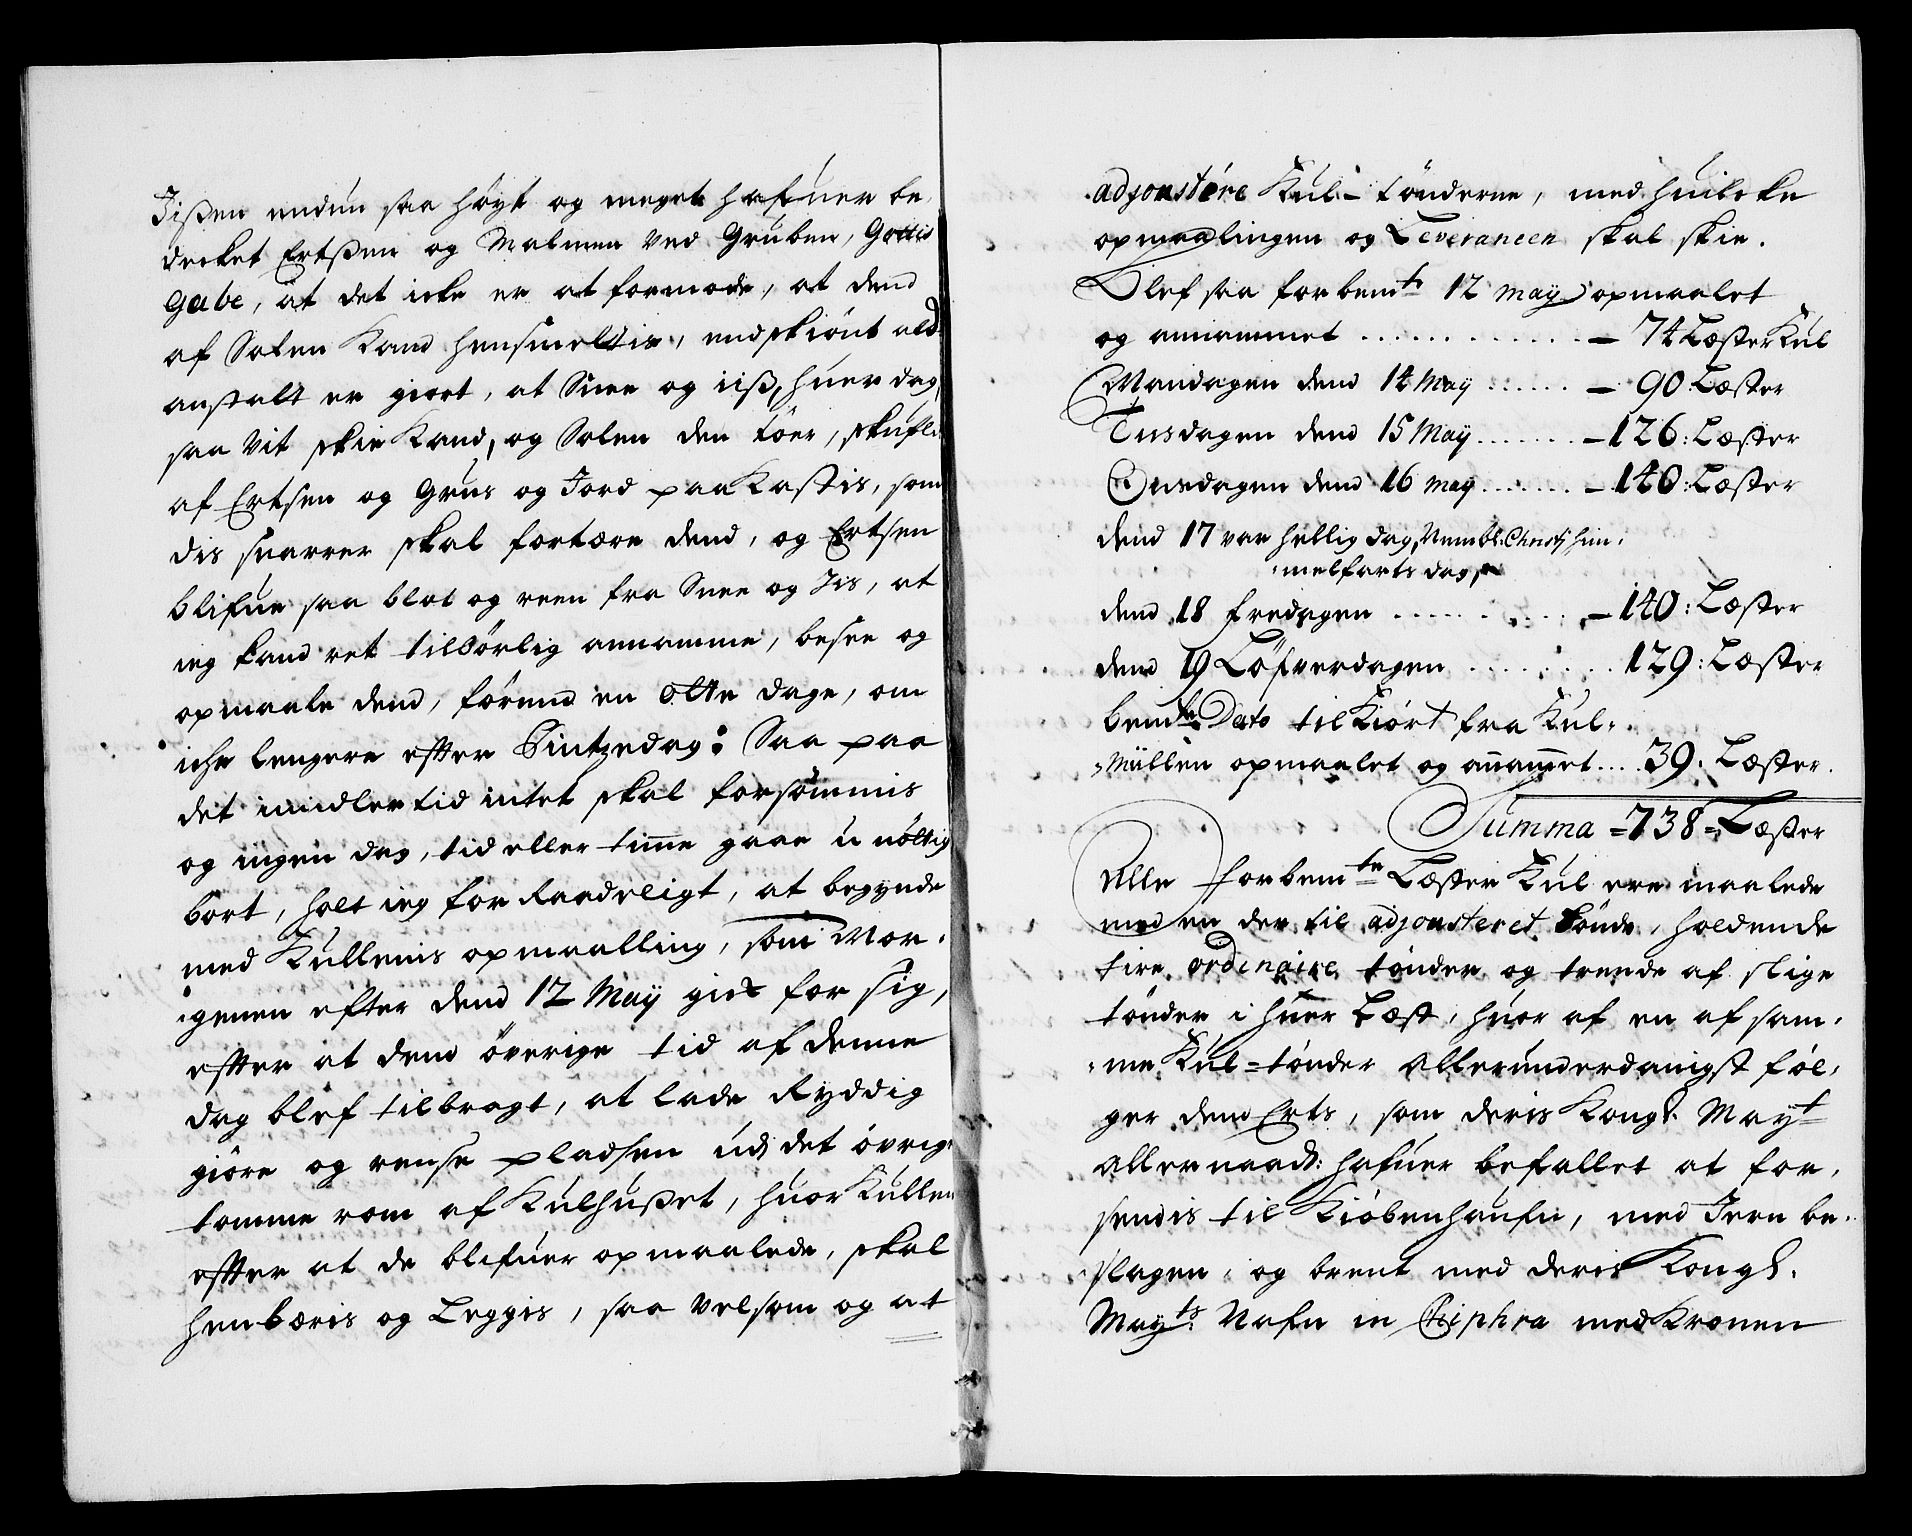 Jißen endnu saa høyt og megit hafuer be-
decket Ertßen og Malmen ved Gruben, Gottis
gabe, at det icke er at formode, at dend
af Solen Kand hensmeltis, endskiönt ald
anstalt er giort, at Snee og iiß, huer dag,
saa vit skie Kand, og Solen den töer, skufl
af Ertsen og Grus og Jord paa Kastis, som
dis snarrer skal fortære dend, og Ertsen
blifue saa blot og reen fra Snee og Jis, at
ieg kand ret tilbörlig annamme, besee og
opmaale dend, förend en otte dage, om
iche lengere efter Pintzedag: Saa paa
det imidlertid intet skal forsömmis
og ingen dag, tid eller time gaae u nöttig
bort, holt ieg for Raadeligt, at begynde
med Kullenis opmaalling, som Mor-
genen efter dend 12 Maÿ gick for sig,
efter at dend överige tid af denne
dag blef tilbragt, at lade Ryddig
giöre og rense pladsen udj det övrig
tomme rom af Kulhußet, huor Kullen
efter at de blifuer opmaalede, skal
henbæris og Leggis, saa velsom og at
adjoustére Kul-tönderne, med huilcke
opmaalingen og Leverancen skal skie.
Blef saa forbemte 12 maÿ opmaalet
og annammet ............ - 74 Læster Kul
Mandagen dend 14 Maÿ ...... - 90: Læster
Tiisdagen dend 15 Maÿ ....... - 126: Læster
Onsdagen dend 16 maÿ ....... - 140: Læster
dend 17 var hellig dag, Nembl. Christj him-
melfarts dag,
dend 18 fredagen ............ - 140: Læster
dend 19 Löfverdagen ........ 129: Læster
bemte Dato tilkiört fra Kul-
Müllen opmaalet og anamet .... 39. Læster.
Summa = 738 = Læster
Alle forbemte Læster Kul ere maalede
med en der til adjousteret Tönde, holdende
tire ordinaire tönder og trende af slige
tönder i huer Læst, huor af en af sam-
me Kul=tönder allerunderdanigst föl-
ger dend Erts, som deris Kongl. Mayt
allernaadt: hafuer befallet at for-
sendis til Kiöbenhaufn, med Jern be-
slagen, og brent med deris Kongl.
Mayts: Nafn in Ciphra med Kronen